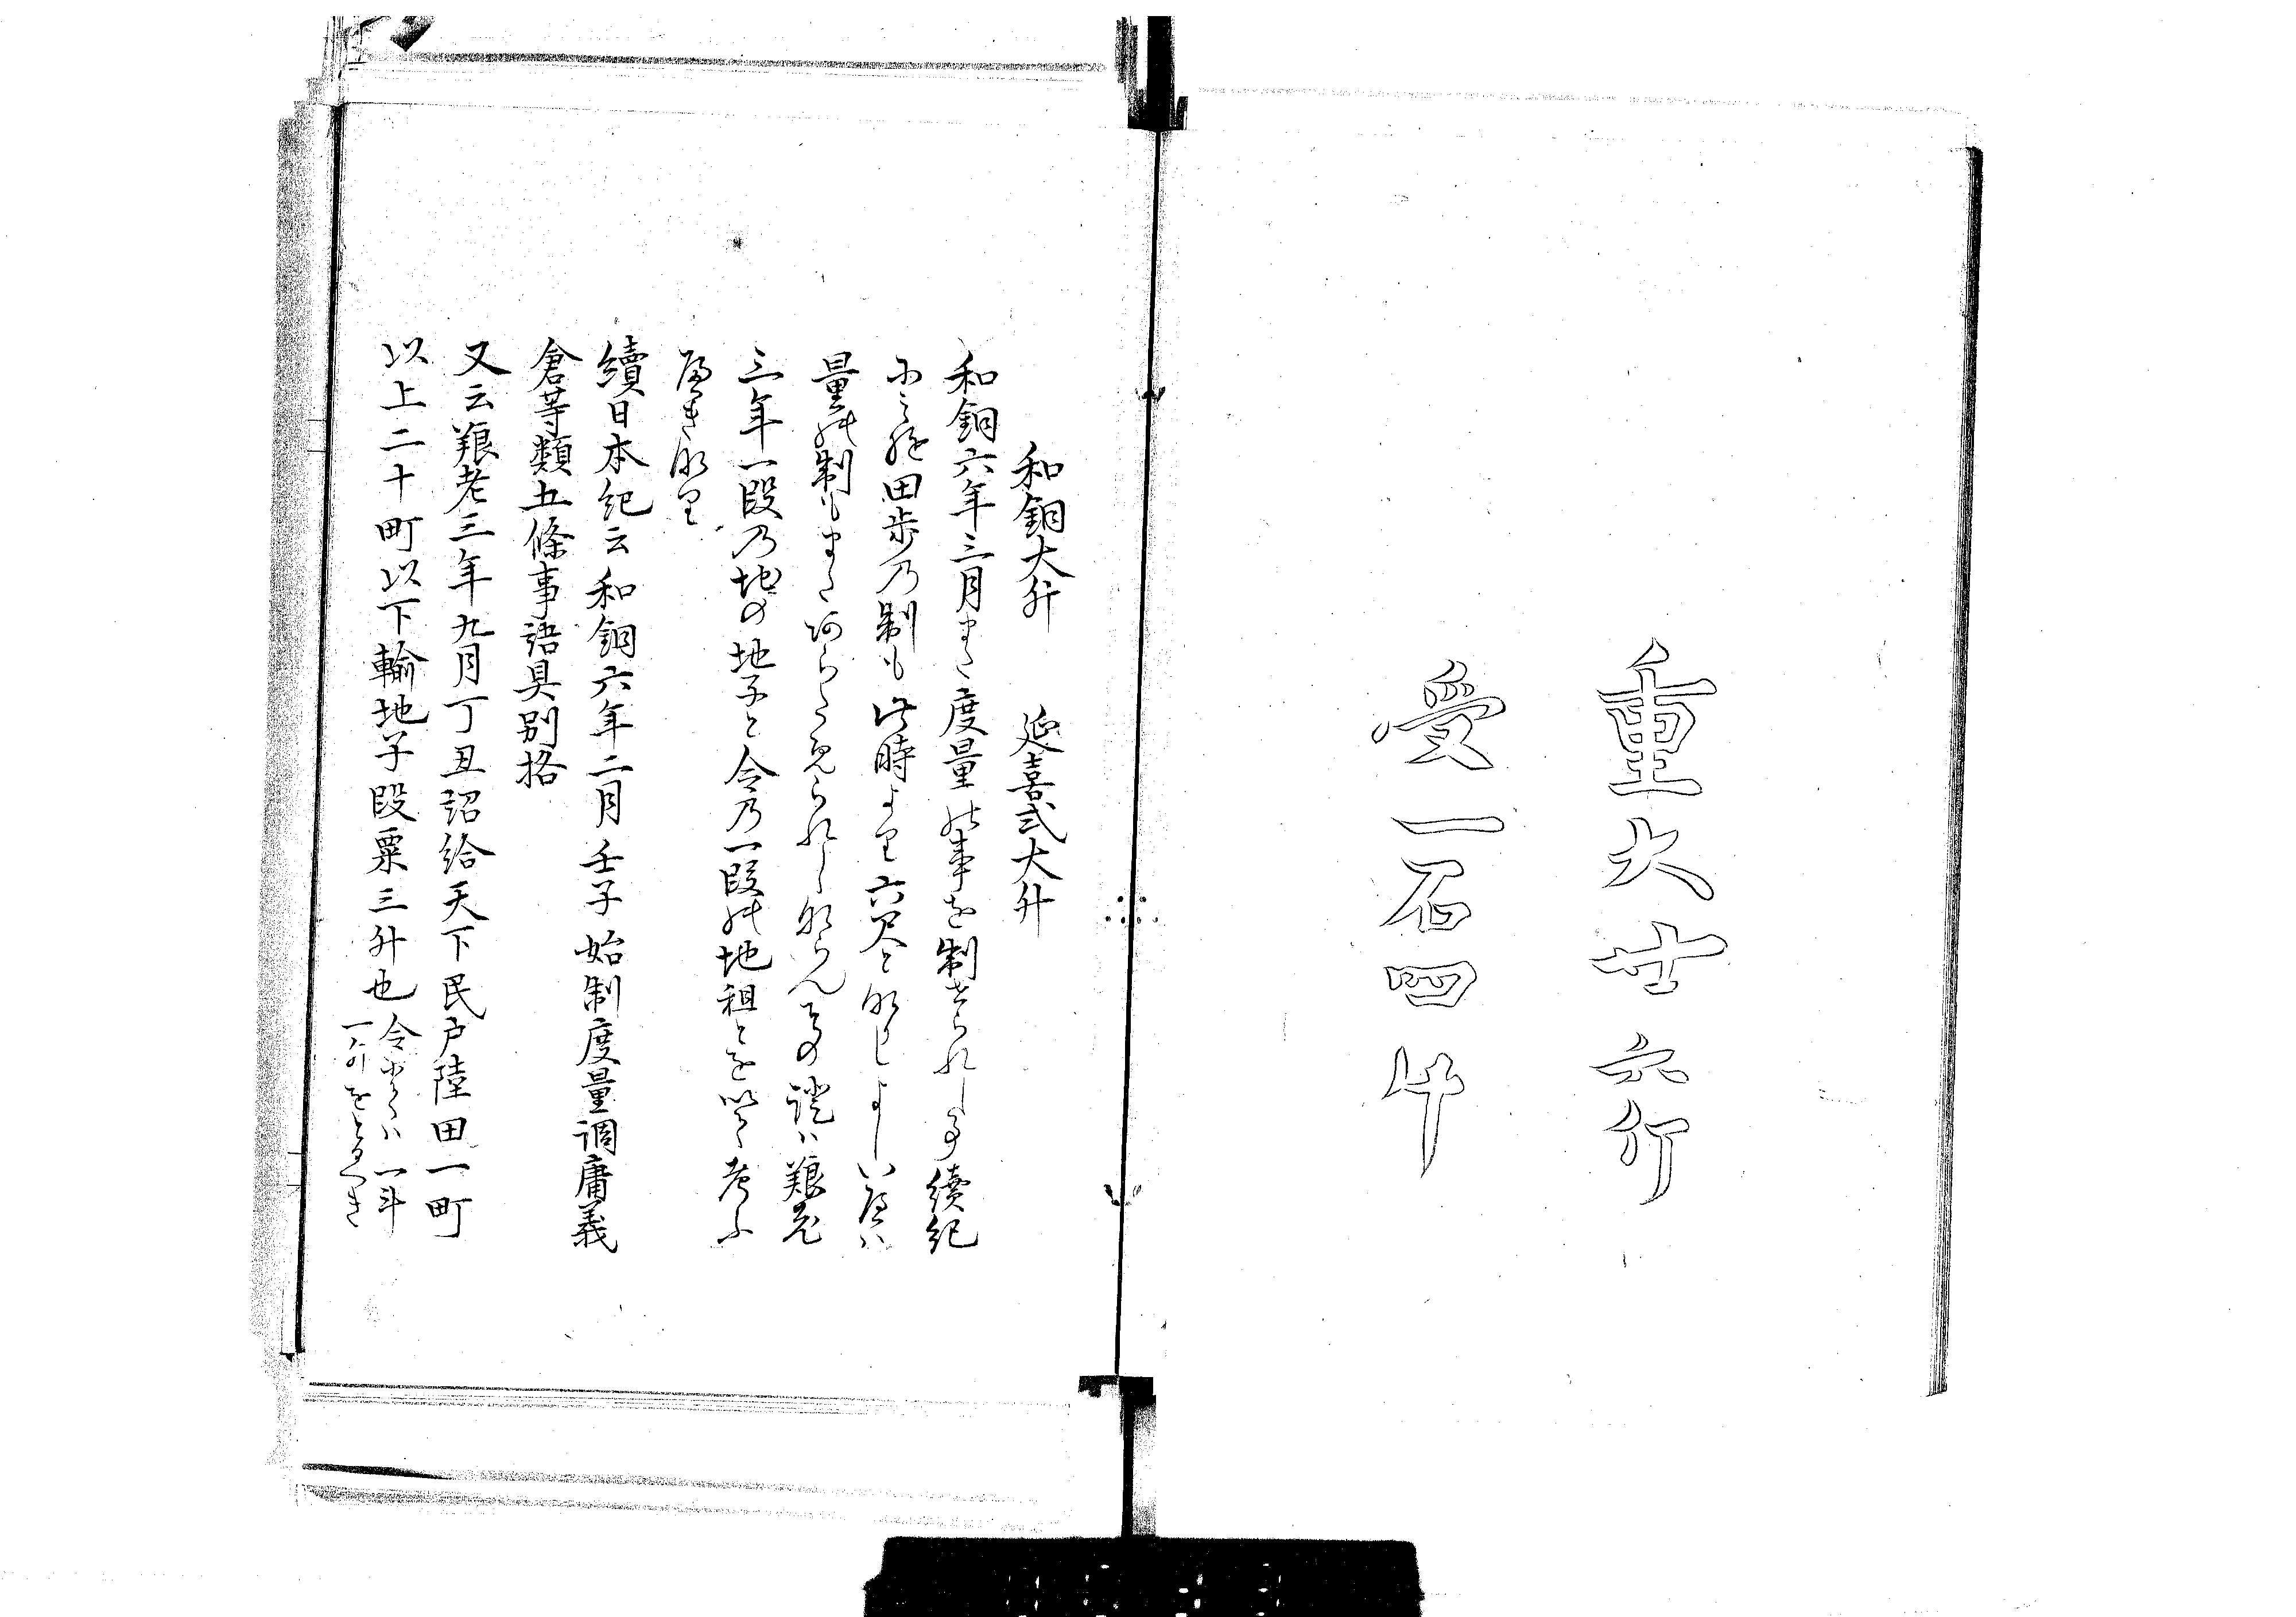 重大廿六斤
受一石四斗
和銅大升　延喜式大升
和銅六年三月また度量の事を制せられし事續紀
にみえ田歩乃制も此時より六尺と成しよしいへは
量の制もまたあらためられしならんその證は養老
三年一段乃地の地子と令乃一段の地租とを以て考ふ
へきなり
續日本紀云和銅六年二月壬子始制度量調庸義
倉等類五條事語具別格
又云養老三年九月丁丑詔給天下民戸陸田一町
以上二十町以下輸地子段粟三升也
一斗
一升をとるへき